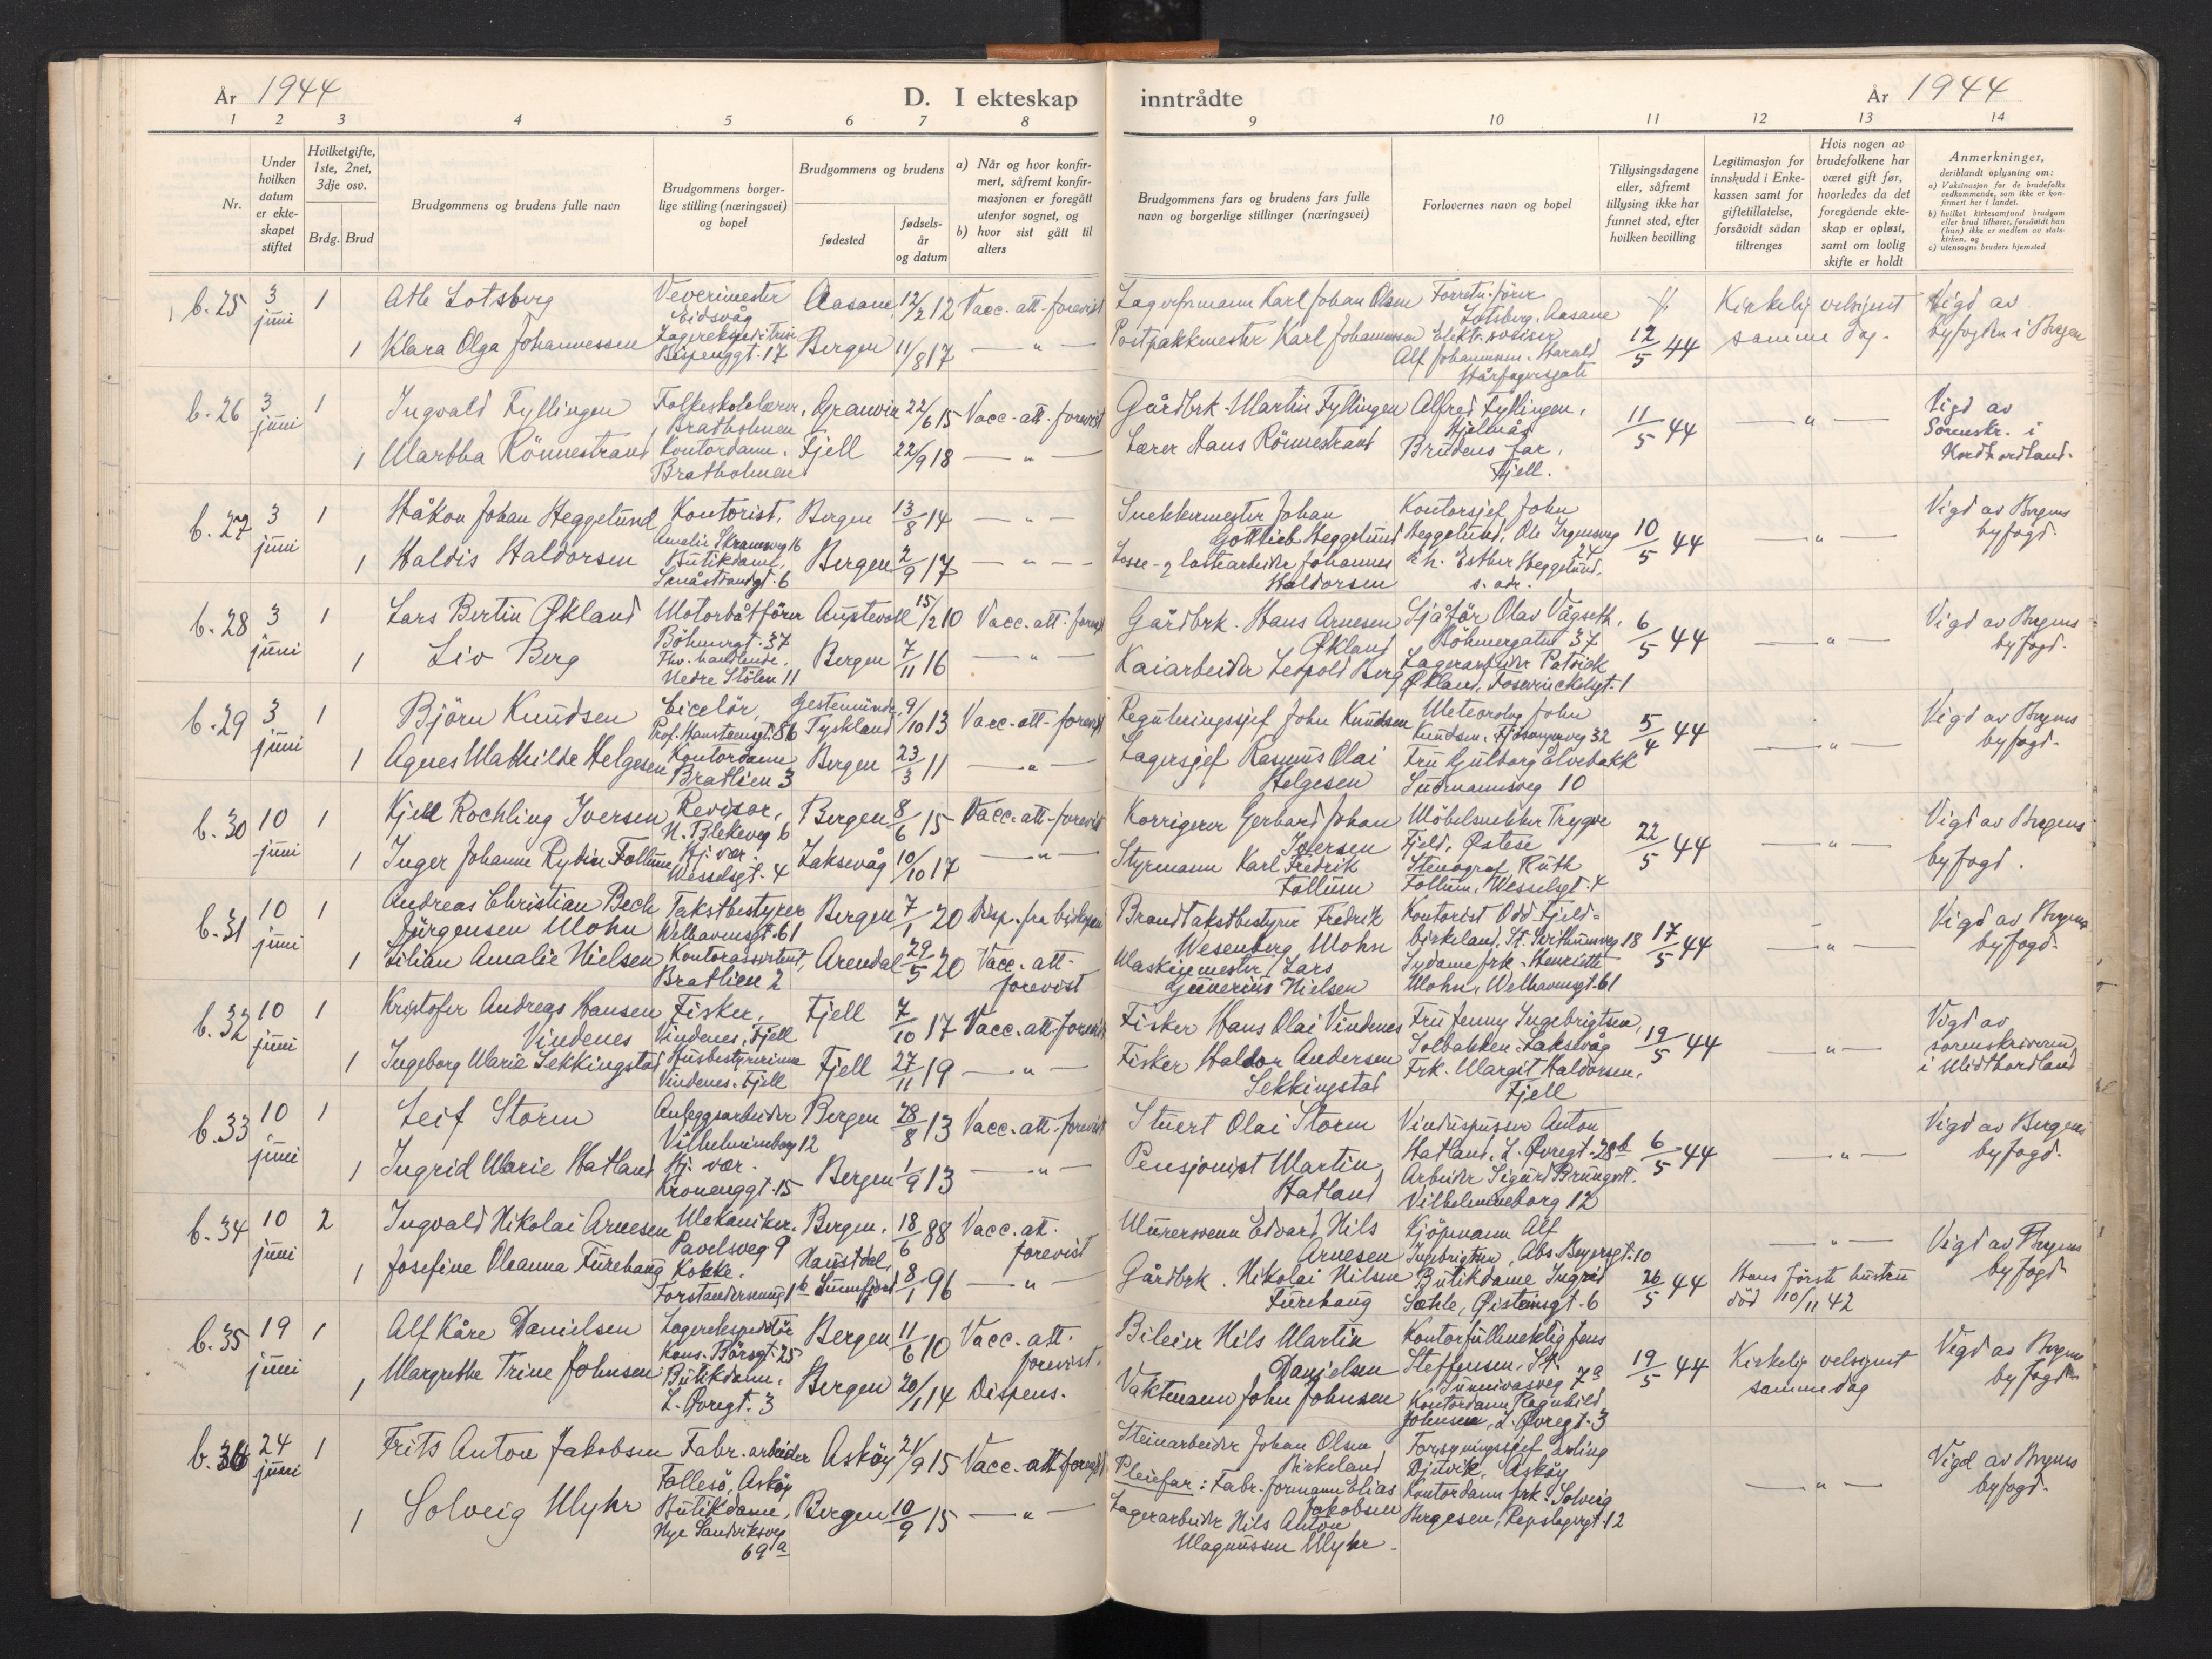 År 1944
D. I ekteskap
inntrådte
År 1944
1 2 3 4 5 6 7 8
9 10 11 12 13 14
Nr.
Under hvilken datum er ekteskapet stiftet
Hvilketgifte, 1ste, 2net, 3dje osv.
Brdg. Brud
Brudgommens og brudens fulle navn
Brudgommens borgerlige stilling (næringsvei) og bopel
Brudgommens og brudens
fødested
fødselsår og datum
a) Når og hvor konfirmert, såfremt konfirmasjonen er foregått utenfor sognet, og
b) hvor sist gått til alters
Brudgommens fars og brudens fars fulle navn og borgerlige stillinger (næringsvei)
Forlovernes navn og bopel
Tillysingsdagene eller, såfremt tillysing ikke har funnet sted, efter hvilken bevilling
Legitimasjon for innskudd i Enkekassen samt for giftetillatelse, forsåvidt sådan tiltrenges
Hvis nogen av brudefolkene har været gift før, hvorledes da det foregående ekteskap er opløst, samt om lovlig skifte er holdt
Anmerkninger, deriblandt oplysning om:
a) Vaksinasjon for de brudefolks vedkommende, som ikke er konfirmert her i landet.
b) hvilket kirkesamfund brudgom eller brud tilhører, forsåvidt han (hun) ikke er medlem av statskirken, og
c) utensogns bruders hjemsted
b. 25 3 juni 1 Atle Lotsberg Veverimester Eidsvåg Aasane 12/2 12 Vacc. att. forevist Lagerformann Karl Johan Olsen Forretn. fører Lotsberg, Aasane Kirkelig velsignet samme dag. Vigd av byfogden i Bergen
1 Klara Olga Johannessen Lagerekspeditrise Bispenggt. 17 Bergen 11/8 17 — " — Postpakkmester Karl Johannessen Alf Johannessen, Harald Hårfagersgate 12/5 44
b. 26 3 juni 1 Ingvald Fyllingen Folkeskolelærer, Bratholmen Granvin 22/6 15 Vacc. att. forevist Gårdbrk. Martin Fyllingen Alfred Fyllingen, Hjelmås 11/5 44 — " — Vigd av Sorenskr. i Nordhordland.
1 Martha Rönnestrand Kontordame. Bratholmen Fjell 22/9 18 — " — Lærer Hans Rönnestrand Brudens far, Fjell.
b. 27 3 juni 1 Håkon Johan Heggelund Kontorist. Amalie Skramsveg 16 Bergen 13/8 14 — " — Snekkermester Johan Gottlieb Heggelund Kontorsjef John Heggelund, Ole Irgensveg 10/5 44 — " — Vigd av Bergens byfogd.
1 Haldis Haldorsen Butikdame, Bergen 2/9 17 — " — Losse- og lastearbeider Johannes Haldorsen Esther Heggelund, s. adr.
b. 28 3 juni 1 Lars Bertin Økland Motorbåtförer Böhmergt. 37 Austevoll 15/2 10 Vacc. att. forevist Gårdbrk. Hans Arnesen Økland Olav Vågseth. Böhmergaten 37 6/5 44 — " — Vigd av Bergens byfogd.
1 Liv Berg Fhv. handlende. Nedre Stölen 11 Bergen 7/11 16 — " — Kaiarbeider Leopold Berg Lagerarbeider Patrick Økland, Foswinckelsgt. 1
b. 29 3 juni 1 Björn Knudsen Eicelör, Prof. Hansteensgt. 86 Gestemünde, Tyskland 9/10 13 Vacc. att. forevist Reguleringssjef John Knudsen Meteorolog John Knudsen, Fjösangerveg 32 5/4 44 — " — Vigd av Bergens byfogd.
1 Agnes Mathilde Helgesen Kontordame Bratlien 3 Bergen 23/3 11 — " — Lagersjef Rasmus Olai Helgesen Fru Gulborg Ålvebakk Sudmannsveg 10
b. 30 10 juni 1 Kjell Rochling Iversen Revisor, N. Blekeveg 6 Bergen 8/6 15 Vacc. att. forevist Korrigerer Gerhard Johan Iversen Möbelsnekker Trygve Fjeld, Østese 22/5 44 — " — Vigd av Bergens byfogd.
1 Inger Johanne Rydin Follum Hj. vær. Wesselsgt. 4 Laksevåg 10/10 17 — " — Styrmann Karl Fredrik Follum Stenograf Ruth Follum, Wesselsgt. 4
b. 31 10 juni 1 Andreas Christian Bech Jörgensen Mohn Takstbestyrer Welhavensgt. 61 Bergen 7/1 20 Disp. fra biskopen Brandtakstbestyrer Fredrik Wesenberg Mohn Kontorist Odd Fjeldbirkeland, St. Svithunsveg 18 17/5 44 — " — Vigd av Bergens byfogd.
1 Lilian Amalie Nielsen Kontorassistent, Bratlien 2 Arendal 29/5 20 Vacc. att. forevist Maskinmester Lars Gunerius Nielsen Sydame frk. Henriette Mohn, Welhavensgt. 61
b. 32 10 juni 1 Kristofer Andreas Hansen Vindenes Fisker, Vindenes, Fjell Fjell 7/10 17 Vacc. att. forevist Fisker Hans Olai Vindenes Fru Jenny Ingebrigtsen, Solbakken, Laksevåg 19/5 44 — " — Vigd av sorenskriveren i Midthordland
1 Ingeborg Marie Lekkingstad Husbestyrerinne Vindenes. Fjell Fjell 27/11 19 — " — Fisker Haldor Andersen Sekkingstad Frk. Margit Haldorsen. Fjell
b. 33 10 juni 1 Leif Storm Anleggsarbeider Vilhelmineborg 12 Bergen 28/8 13 Vacc. att. forevist Stuert Olai Storm Vinduspusser Anton Hatland, L. Øvregt. 28b 6/5 44 — " — Vigd av Bergens byfogd.
1 Ingrid Marie Hatland Hj. vær. Kronenggt. 15 Bergen 1/9 13 — " — Pensjonist Martin Hatland Arbeider Sigurd Brungot. Vilhelmineborg 12
b. 34 10 juni 2 Ingvald Nikolai Arnesen Mekaniker. Pavelsveg 9 Bergen. 18/6 88 Vacc. att. forevist Murersvenn Edvard Nils Arnesen Kjöpmann Alf Ingebrigtsen, Abs. Beyersgt. 10 — " — Vigd av Bergens byfogd
1 Josefine Oleanna Furehaug Kokke. Forstanderssmug 1b Naustdal, Sunnfjord 8/1 96 — " — Gårdbrk. Nikolai Nilsen Furehaug Butikdame Ingrid Sæhle, Øisteinsgt. 6 26/5 44 Hans förste hustru död 10/11 42
b. 35 19 juni 1 Alf Kåre Danielsen Lagerekspeditör Kons. Börsgt. 25 Bergen 11/6 10 Vacc. att. forevist. Bileier Nils Martin Danielsen Kontorfullmektig Jens Steffensen, St. Sunnivasveg 7a 19/5 44 Kirkelig velsignet samme dag Vigd av Bergens byfogd
1 Margrethe Trine Johnsen Butikdame, L. Øvregt. 3 Bergen 20/1 14 Dispens. Vaktmann John Johnsen Kontordame Ragnhild Johnsen, L. Øvregt. 3
b. 36 24 juni 1 Frits Anton Jakobsen Fabr. arbeider Follesö, Asköy Asköy 21/9 15 Vacc. att. forevist Steinarbeider Johan Olsen Birkeland Pleiefar: Fabr. formann Elias Jakobsen Forsyningssjef Erling Djutvik, Asköy — " — Vigd av Bergens byfogd.
1 Solveig Myhr Butikdame, Nye Sandviksveg 69a Bergen 10/9 15 — " — Lagerarbeider Nils Anton Magnussen Myhr. Kontordame frk. Solveig Børgesen, Repslagergt. 12